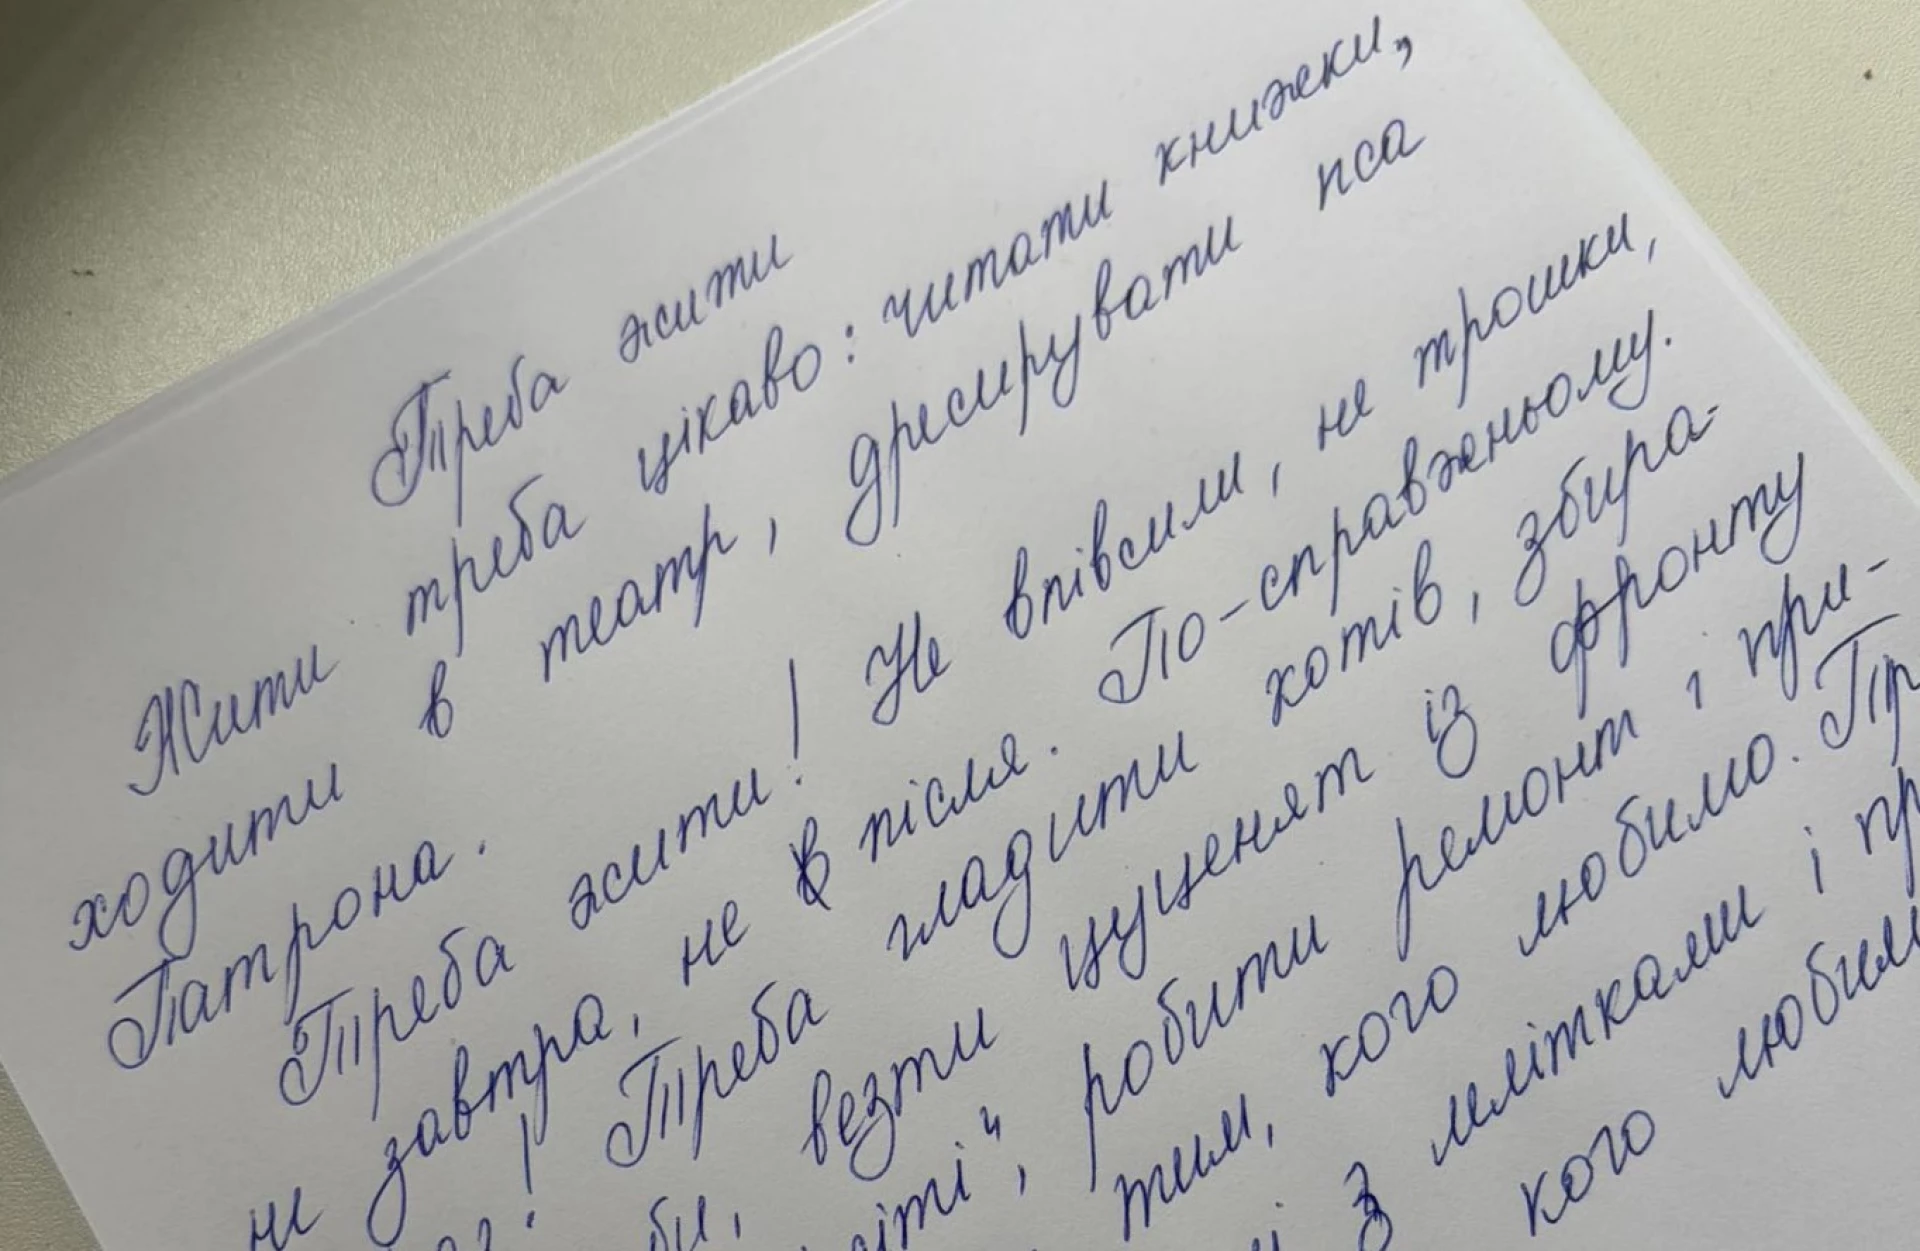 Треба жити
Жити треба цікаво: читати книжки,
ходити в театр, дресирувати пса
Патрона.
Треба жити! Не впівсили, не трошки,
не завтра, не в після. По-справжньому.
! Треба гладити котів, збира-
везти цуценят із фронту
робити ремонт і при-
тим, кого любимо.
з мітками і
кого